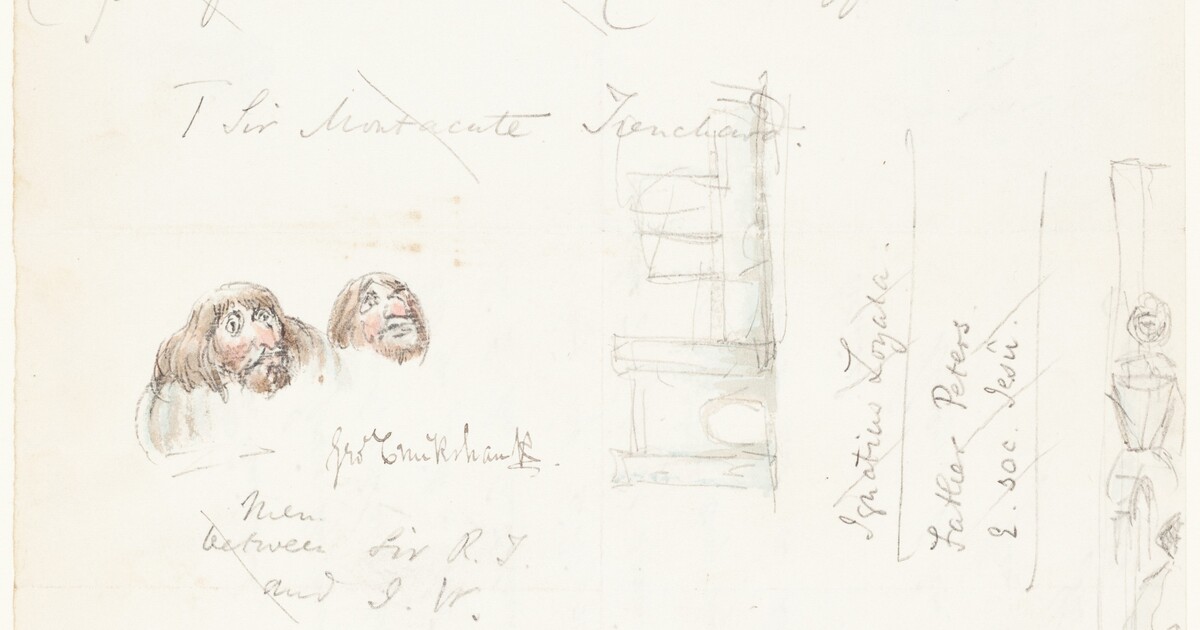 Sir Montacute Trenchard.
Geo Cruikshank
Men
between Sir R. T.
and J. W.
Ignatius Loyala.
Father Peters.
E. soc. Jesu.